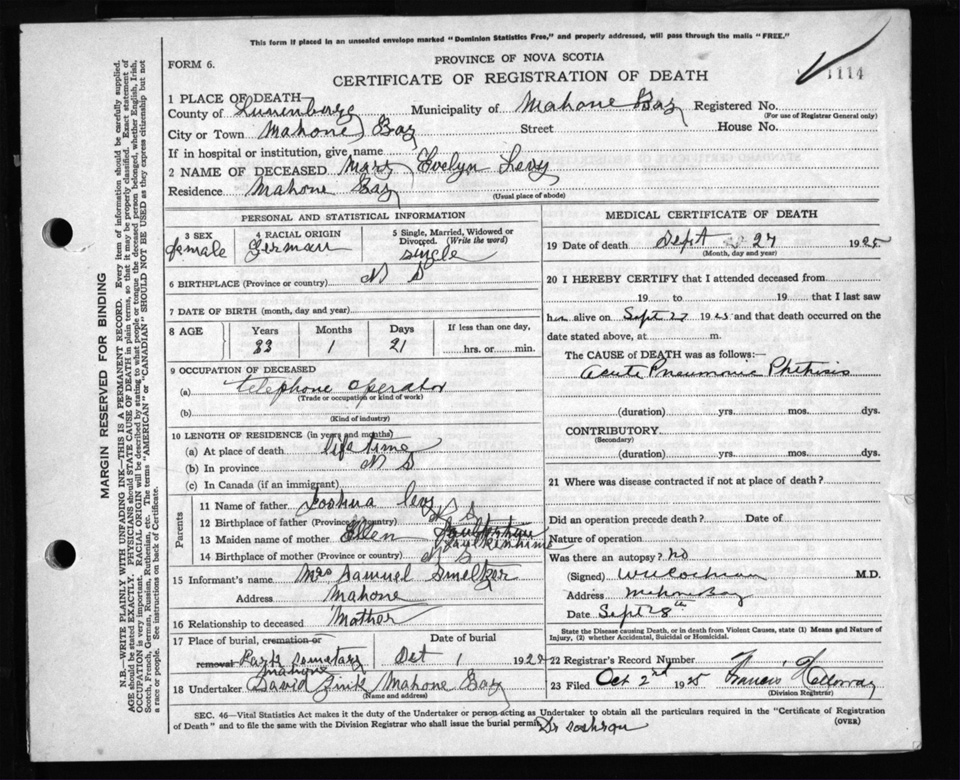 This form if placed in an unsealed envelope marked "Dominion Statistics Free," and properly addressed, will pass through the mails "FREE."
FORM 6.
PROVINCE OF NOVA SCOTIA
CERTIFICATE OF REGISTRATION OF DEATH
1114
1 PLACE OF DEATH—
County of Lunenburg Municipality of Mahone Bay Registered No.
(For use of Registrar General only)
City or Town Mahone Bay Street House No.
If in hospital or institution, give name
2 NAME OF DECEASED Mary Evelyn Levy
Residence Mahone Bay
(Usual place of abode)
PERSONAL AND STATISTICAL INFORMATION
3 SEX female
4 RACIAL ORIGIN German
5 Single, Married, Widowed or Divorced. (Write the word) single
6 BIRTHPLACE (Province or country) N S
7 DATE OF BIRTH (month, day and year)
8 AGE Years Months Days If less than one day,
1 21 hrs. or min.
9 OCCUPATION OF DECEASED
(a) telephone operator
(Trade or occupation or kind of work)
(b)
(Kind of industry)
10 LENGTH OF RESIDENCE (in years and months)
(a) At place of death life time
(b) In province N S
(c) In Canada (if an immigrant)
Parents
11 Name of father Joshua Levy
12 Birthplace of father (Province or country) N S
13 Maiden name of mother Ellen
14 Birthplace of mother (Province or country) N S
15 Informant's name Mrs Samuel Smelzer
Address Mahone
16 Relationship to deceased Mother
17 Place of burial, cremation or removal Park Cemetary Mahone
Date of burial Oct 1 192
18 Undertaker David Zink Mahone Bay
(Name and address)
MEDICAL CERTIFICATE OF DEATH
19 Date of death Sept 27 1925
(Month, day and year)
20 I HEREBY CERTIFY that I attended deceased from
19 to 19 that I last saw
her alive on Sept 27 1925 and that death occurred on the
date stated above, at m.
The CAUSE OF DEATH was as follows:
Acute Pneumonic Phthisis
(duration) yrs. mos. dys.
CONTRIBUTORY
(Secondary)
(duration) yrs. mos. dys.
21 Where was disease contracted if not at place of death?
Did an operation precede death? Date of
Nature of operation
Was there an autopsy? no
(Signed) W U Cochran M.D.
Address Mahone Bay
Date Sept 28th
State the Disease causing Death, or in death from Violent Causes, state (1) Means and Nature of Injury, (2) whether Accidental, Suicidal or Homicidal.
22 Registrar's Record Number
23 Filed Oct 2nd 1925 Francis Holloway
(Division Registrar)
SEC. 46—Vital Statistics Act makes it the duty of the Undertaker or person acting as Undertaker to obtain all the particulars required in the "Certificate of Registration
of Death" and to file the same with the Division Registrar who shall issue the burial permit.
(OVER)
Dr Cochran
MARGIN RESERVED FOR BINDING
N.B.—WRITE PLAINLY WITH UNFADING INK—THIS IS A PERMANENT RECORD. Every item of information should be carefully supplied.
AGE should be stated EXACTLY. PHYSICIANS should STATE CAUSE OF DEATH in plain terms, so that it may be properly classified. Exact statement of
OCCUPATION is very important. RACIAL ORIGIN will be described by stating to what people or tongue the deceased person belonged, whether English, Irish,
Scotch, French, German, Russian, Ruthenian, etc. The terms "AMERICAN" or "CANADIAN" SHOULD NOT BE USED as they express citizenship but not
a race or people. See instructions on back of Certificate.